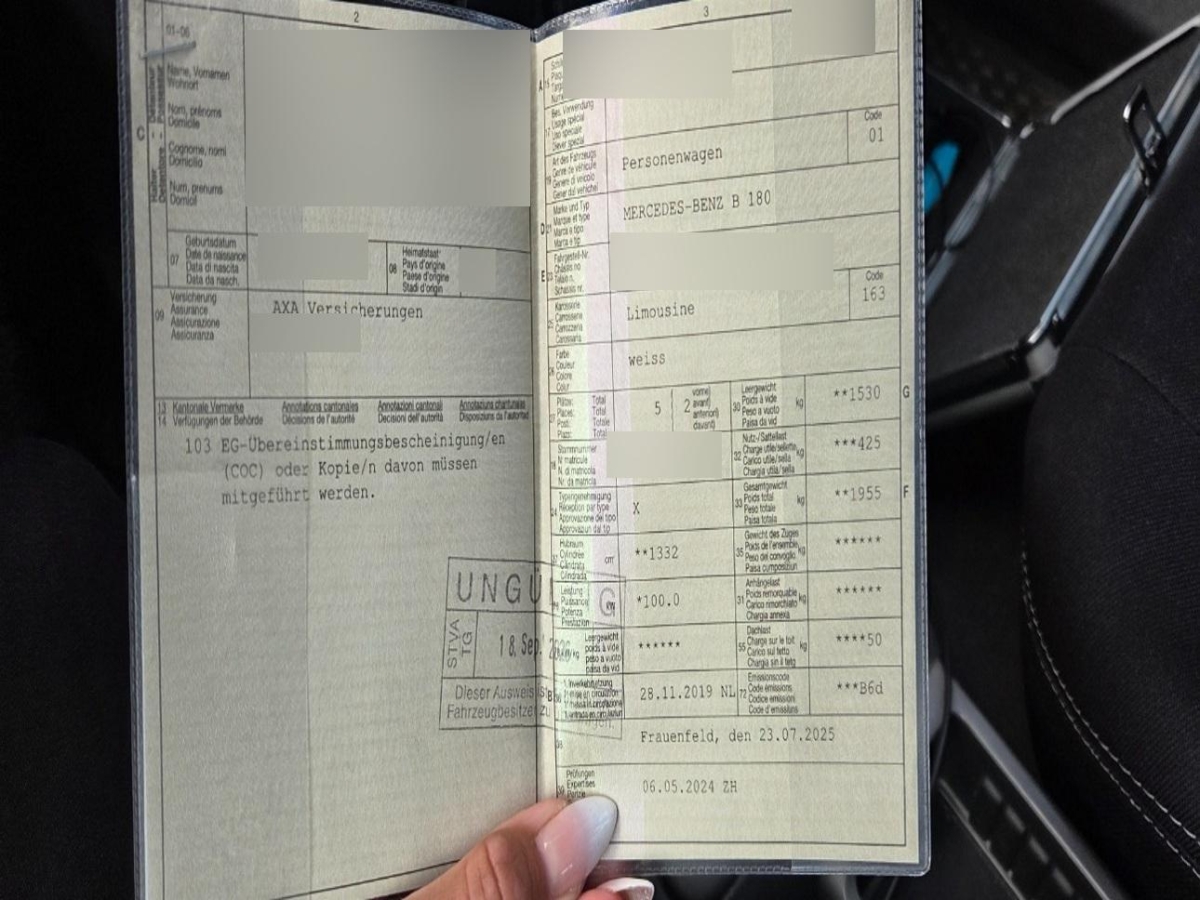 2
01-06
C
Halter - Détenteur
Detentore - Possessur
Name, Vornamen
Wohnort
Nom, prénoms
Domicile
Cognome, nomi
Domicilio
Num, prenums
Domicil
07
Geburtsdatum
Date de naissance
Data di nascita
Data da nasch.
08
Heimatstaat
Pays d'origine
Paese d'origine
Stadi d'origin
09
Versicherung
Assurance
Assicurazione
Assicuranza
AXA Versicherungen
13 Kantonale Vermerke
14 Verfügungen der Behörde
Annotations cantonales
Décisions de l'autorité
Annotazioni cantonali
Decisioni dell'autorità
Annotaziuns chantunalas
Disposiziuns da l'autoritad
103 EG-Übereinstimmungsbescheinigung/en
(COC) oder Kopie/n davon müssen
mitgeführt werden.
STVA
TG
18. Sep.
Dieser Ausweis
Fahrzeugbesitzer
3
A
Bes. Verwendung
Usage spécial
Uso speciale
Diever spezial
Art des Fahrzeugs
Genre de véhicule
Genere di veicolo
Gener dal vehichel
Personenwagen
Code
01
D
Marke und Typ
Marque et type
Marca e tipo
Marca e tip
MERCEDES-BENZ B 180
E
Fahrgestell-Nr.
Châssis no
Telaio n.
Schassis nr.
Karosserie
Carrosserie
Carrozzeria
Carossaria
Limousine
Code
163
Farbe
Couleur
Colore
Colur
weiss
Plätze: Total
Places: Total
Posti: Totale
Plazs: Total
5
2
vorne
avant
anteriori
davant
30
Leergewicht
Poids à vide
Peso a vuoto
Paisa da vid
kg
**1530
G
Stammnummer
N° matricule
N. di matricola
Nr. da matricla
32
Nutz-/Sattellast
Charge utile/sellette
Carico utile/sella
Chargia utila/sella
kg
***425
Typengenehmigung
Réception par type
Approvazione del tipo
Approvaziun dal tip
X
33
Gesamtgewicht
Poids total
Peso totale
Paisa totala
kg
**1955
F
Hubraum
Cylindrée
Cilindrata
Cilindrada
cm³
**1332
35
Gewicht des Zuges
Poids de l'ensemble
Peso del convoglio
Paisa cumposiziun
kg
******
Leistung
Puissance
Potenza
Prestaziun
kW
*100.0
31
Anhängelast
Poids remorquable
Carico rimorchiato
Chargia annexa
kg
******
Leergewicht
poids à vide
peso a vuoto
paisa da vid
******
55
Dachlast
Charge sur le toit
Carico sul tetto
Chargia sin il tetg
kg
****50
B
1. Inverkehrsetzung
1re mise en circulation
1. messa in circolazione
28.11.2019 NL
72
Emissionscode
Code émissions
Codice emissioni
Code d'emissiuns
***B6d
Frauenfeld, den 23.07.2025
Prüfungen
Expertises
06.05.2024 ZH